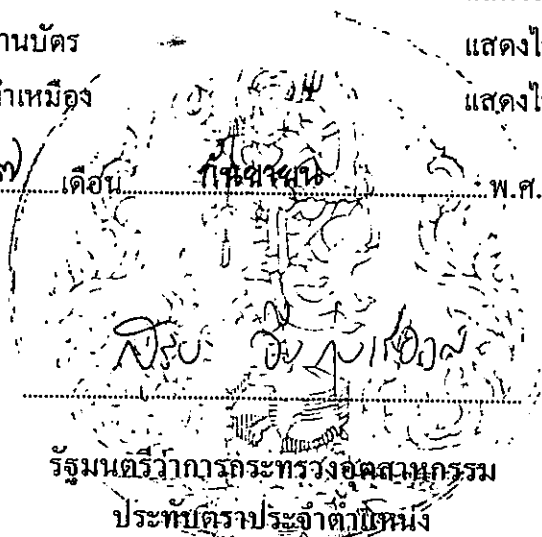 แสดงไ
านบัตร
แสดงไ
ำเหมือง
๗ เดือน กันยายน พ.ศ.
รัฐมนตรีว่าการกระทรวงอุตสาหกรรม
ประทับตราประจำตำแหน่ง